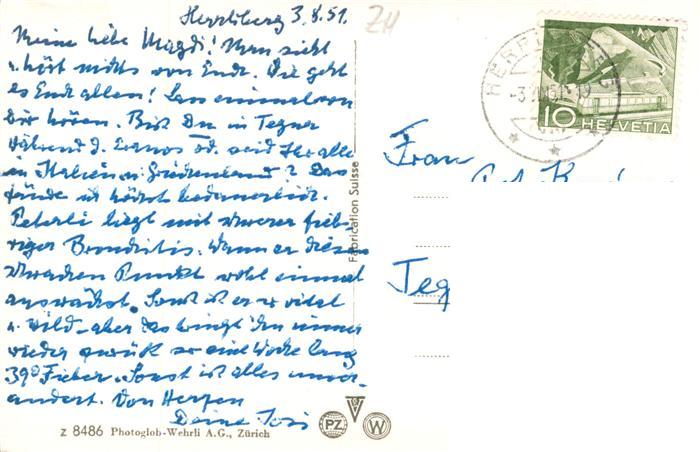 Herrliberg 3.8.51.
Meine liebe Magdi! Man sieht
u. hört nichts von Euch. Wie geht
es Euch allen? Lass einmal von
Dir hören. Bist Du in Tegna
während d. Eranos od. seid Ihr alle
in Italien u. Griechenland? Das
fände ich höchst bedauerlich.
Peterli liegt mit schwerer fieb-
riger Bronchitis. Wann er diesen
schwachen Punkt wohl einmal
auswächst. Sonst ist er so vital
u. wild - aber das bringt ihn immer
wieder zurück so eine Woche lang
39° Fieber. Sonst ist alles unver-
ändert. Von Herzen
Deine
ZH
HELVETIA
10
Frau
Teg
Fabrication Suisse
z 8486 Photoglob-Wehrli A.G., Zürich
PZ
W